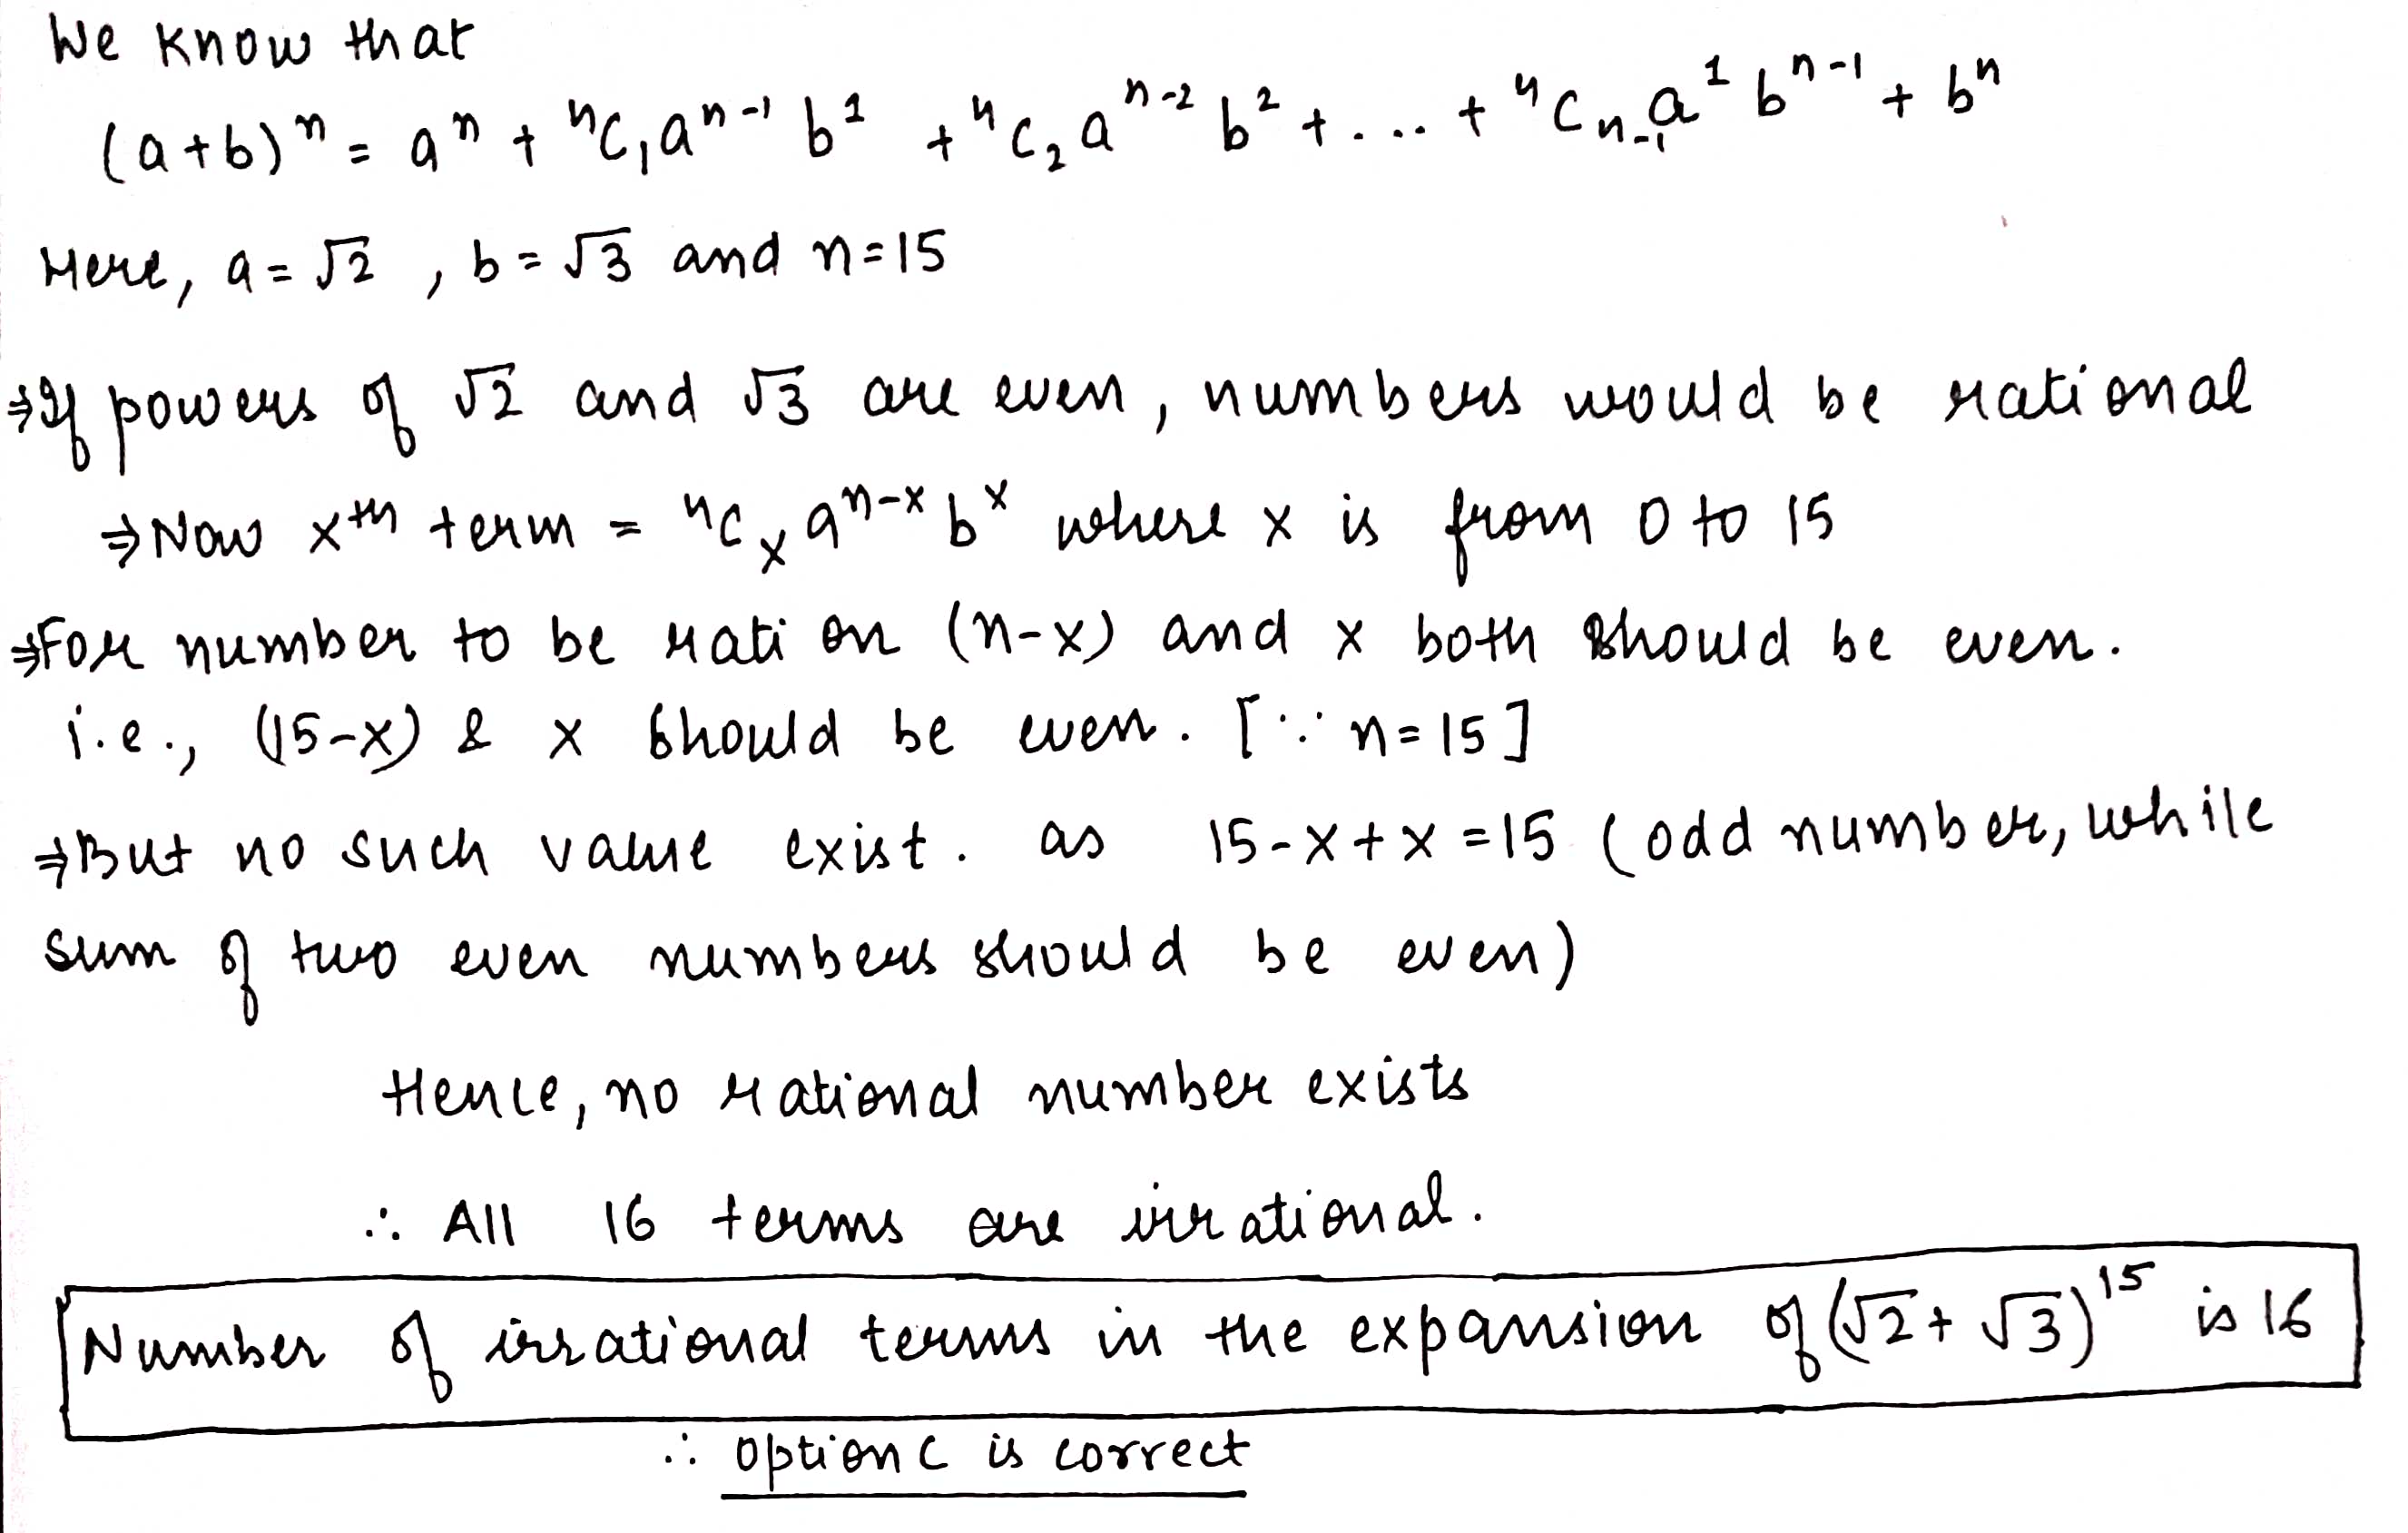 We know that
(a+b)ⁿ = aⁿ + ⁿC₁aⁿ⁻¹ b¹ + ⁿC₂aⁿ⁻² b² + .... + ⁿCₙ₋₁a¹ bⁿ⁻¹ + bⁿ
Here, a = √2 , b = √3 and n=15
⇒If powers of √2 and √3 are even, numbers would be rational
⇒Now xᵗʰ term = ⁿCₓ aⁿ⁻ˣ bˣ where x is from 0 to 15
⇒For number to be ration (n-x) and x both should be even.
i.e., (15-x) & x should be even. [∵ n=15]
⇒But no such value exist. as 15-x+x=15 (odd number, while
sum of two even numbers should be even)
Hence, no rational number exists
∴ All 16 terms are irrational.
Number of irrational terms in the expansion of (√2+√3)¹⁵ is 16
∴ option C is correct